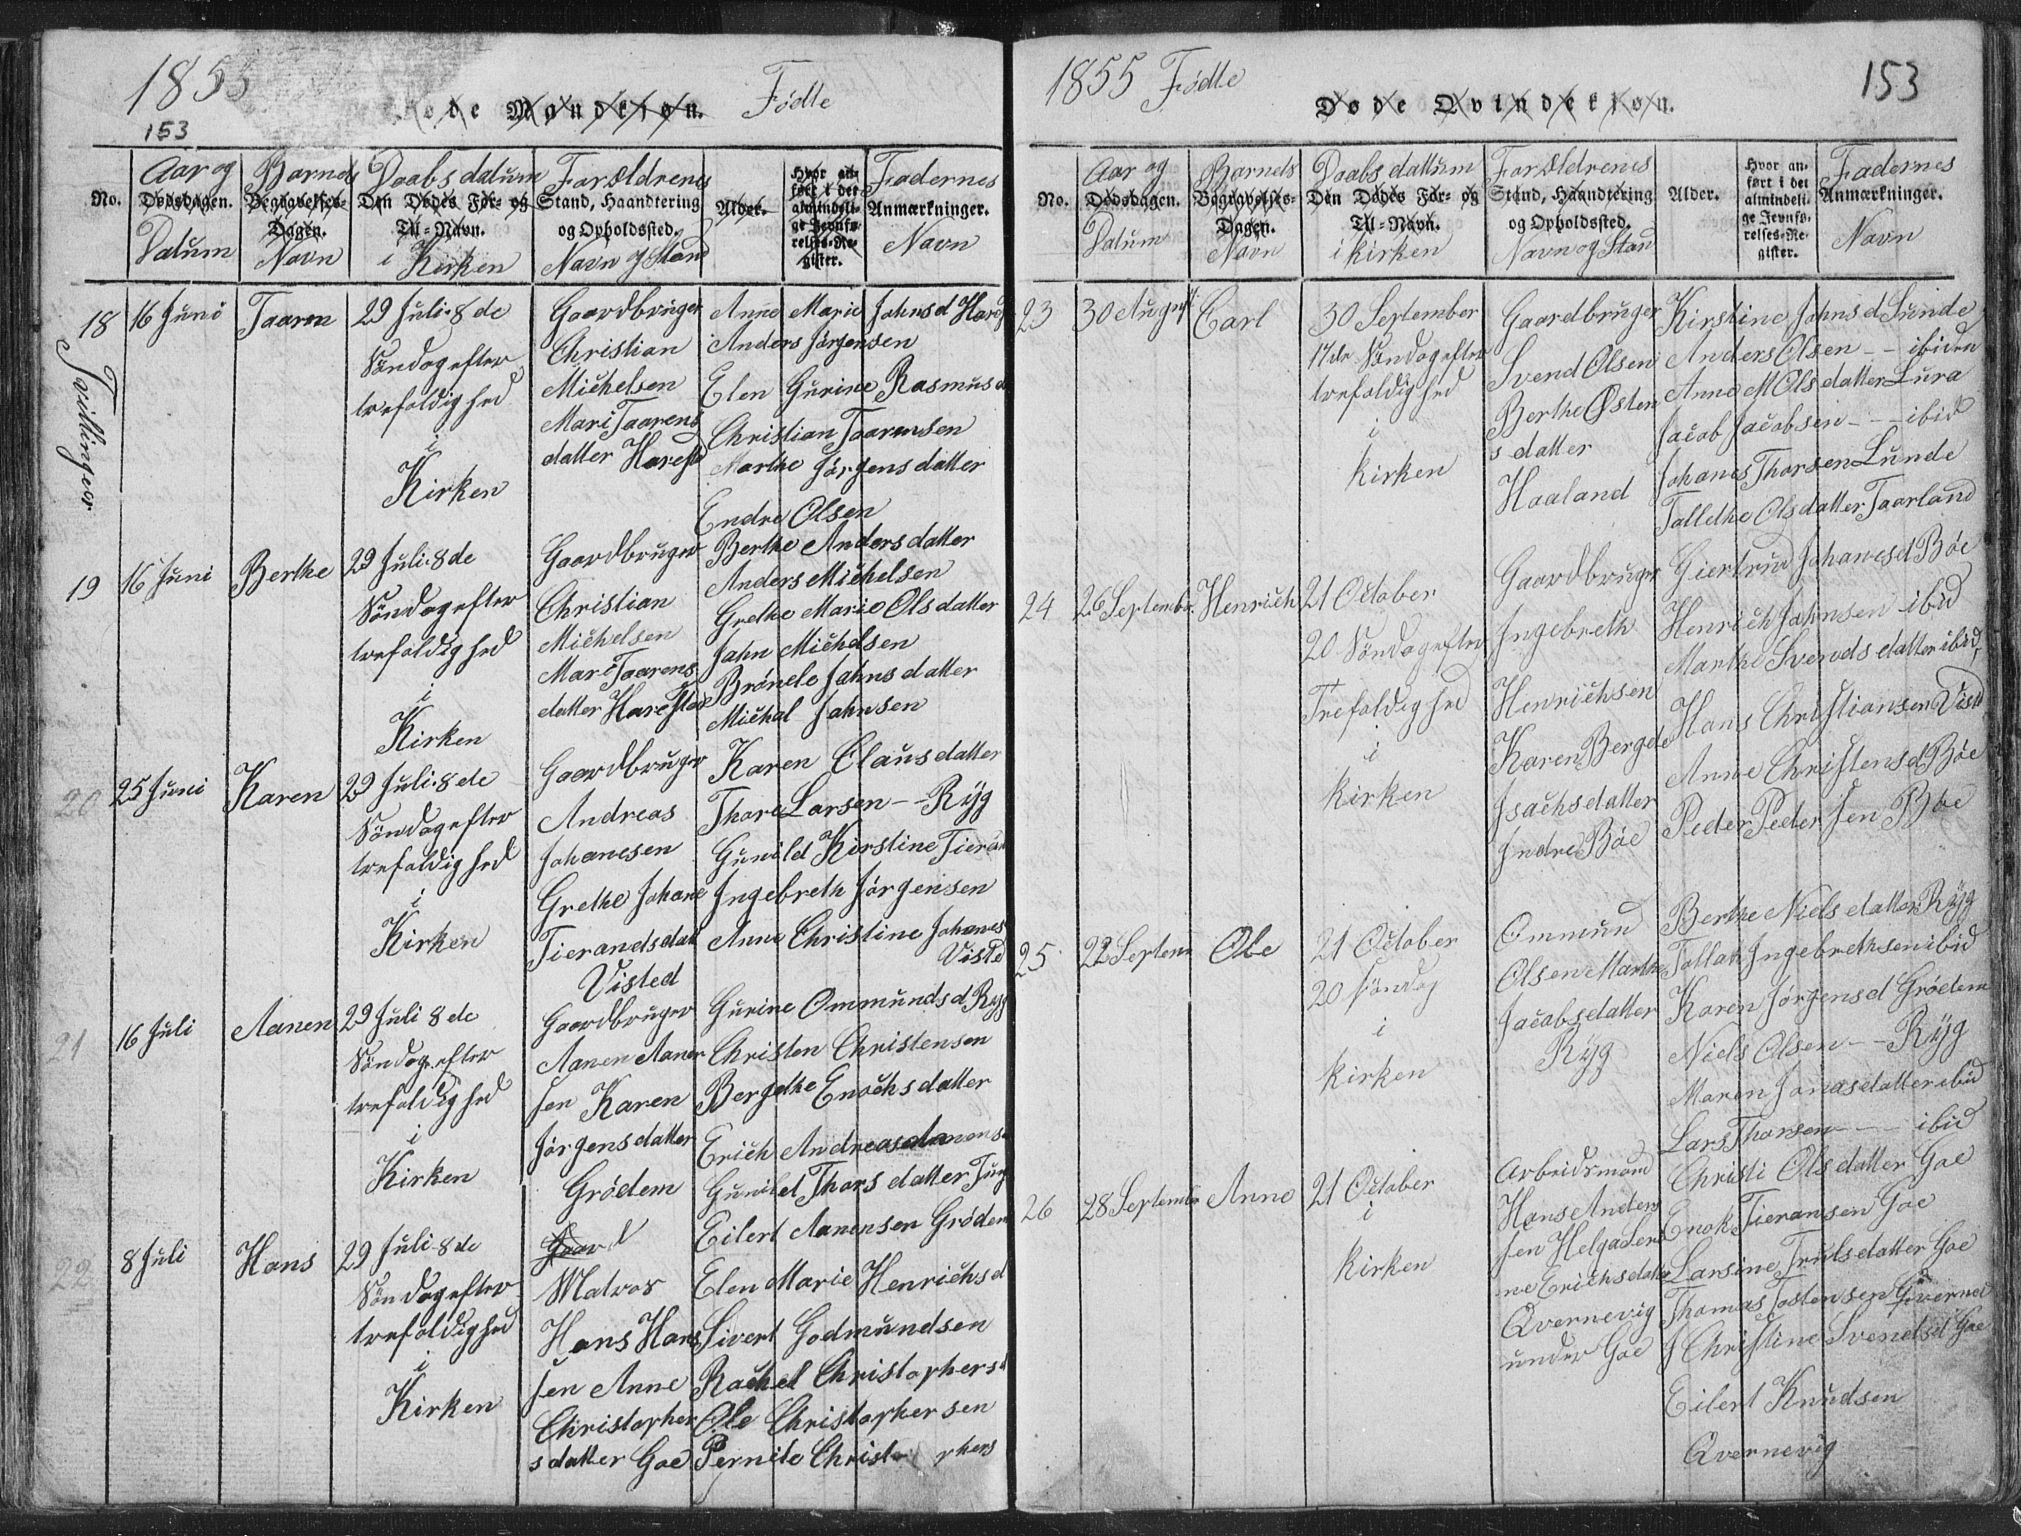 1855
153
Døde Mandkiøn. Fødte
No.
Aar og
Dødsdagen.
Datum
Barnets
Begravelses-
Dagen.
Navn
Daabs datum
Den Dødes For- og
Til-Navn.
i Kirken
Forældrenes
Stand, Haandtering
og Opholdssted.
Navn og Stand
Alder.
Hvor an-
ført i det
almindeli-
ge Jevnfø-
relses-Re-
gister.
Fadernes
Anmærkninger.
Navn
Tvillinger
18
16 Juni
Taaren
29 Juli 8de
Søndag efter
trefoldighed
i
Kirken
Gaardbruger
Christian
Michelsen
Mari Taarens
datter Harestad
Anne Marie Jahns d
Anders Jørgensen
Elen Gurine Rasmus d
Christian Taarensen
Marthe Jørgensdatter
Endre Olsen
19
16 Juni
Berthe
29 Juli 8de
Søndag efter
trefoldighed
i
Kirken
Gaardbruger
Christian
Michelsen
Mari Taarens
datter Harestad
Berthe Andersdatter
Anders Michelsen
Grethe Marie Olsdatter
Jahn Michelsen
Brønele Jahnsdatter
Michal Jahnsen
20
25 Juni
Karen
29 Juli 8de
Søndag efter
trefoldighed
i
Kirken
Gaardbruger
Andreas
Johanesen
Grethe Johane
Tierandsdat
Visted
Karen Clausdatter
Thore Larsen -- Ryg
Gunild Kirstine
Ingebreth Jørgensen
Anne Christine Johanes
Visted
21
16 Juli
Aanen
29 Juli 8de
Søndag efter
trefoldighed
i
Kirken
Gaardbruger
Aanen Aanen
sen Karen
Jørgensdatter
Grødem
Gurine Ommunds d Ryg
Christen Christensen
Bergethe Enochsdatter
Erich Andreas
Gunild Thorsdatter
Eilert Aanensen Grødem
22
8 Juli
Hans
29 Juli 8de
Søndag efter
trefoldighed
i
Kirken
Gaard
Matros
Hans Hans
sen Anne
Christopher
sdatter Goe
Elen Marie Henrichs d
Sivert Godmundsen
Rachel Christophers d
Ole Christophersen
Pernile Christophers
1855 Fødte
Døde Qvindekiøn.
153
No.
Aar og
Dødsdagen.
Datum
Barnets
Begravelses-
Dagen.
Navn
Daabs dattum
Den Dødes For- og
Til-Navn.
i kirken
Forældrenes
Stand, Haandtering
og Opholdssted.
Navn og Stan
Alder.
Hvor an-
ført i det
almindeli-
ge Jevnfø-
relses-Re-
gister.
Fadernes
Anmærkninger.
Navn
23
30 August
Carl
30 September
17de Søndag efter
trefoldighed
i
kirken
Gaardbruger
Svend Olsen
Berthe Østen
sdatter
Haaland
Kirstine Jahns d Lunde
Anders Olsen -- ibiden
Anne M Olsdatter Lura
Jacob Jacobsen --- ibid
Johanes Thorsen Lunde
Tallethe Olsdatter Taarland
24
26 Septembr.
Henrich
21 October
20 Søndag efter
Trefoldighed
i
kirken
Gaardbruger
Ingebreth
Henrichsen
Karen Bergete
Isachsdatter
Indre Bøe
Giertrud Johanes d Bøe
Henrich Jahnsen ibid
Marthe Svendsdatter ibid
Hans Christiansen Visted
Anne Christens d Bøe
Peder Pedersen Bøe
25
22 Septem
Ole
21 October
20 søndag
i
kirken
Ommund
Olsen Marthe
Jacobsdatter
Ryg
Berthe Nielsdatter Ryg
Tollak Ingebrethsen ibid
Karen Jørgens d Grødem
Niels Olsen -- Ryg
Maren Jonasdatter ibid
Lars Thorsen --- ibid
26
28 Septembr
Anne
21 October
i
kirken
Arbeidsmand
Hans Anders
sen Helga Seri
ne Erichsdatter
Qvernevig
under Goe
Christi Olsdatter Goe
Enok Tieransen Goe
Larsine Trulsdatter Goe
Thomas Tostensen
J Christine Svends d Goe
Eilert Knudsen
Qvernevig